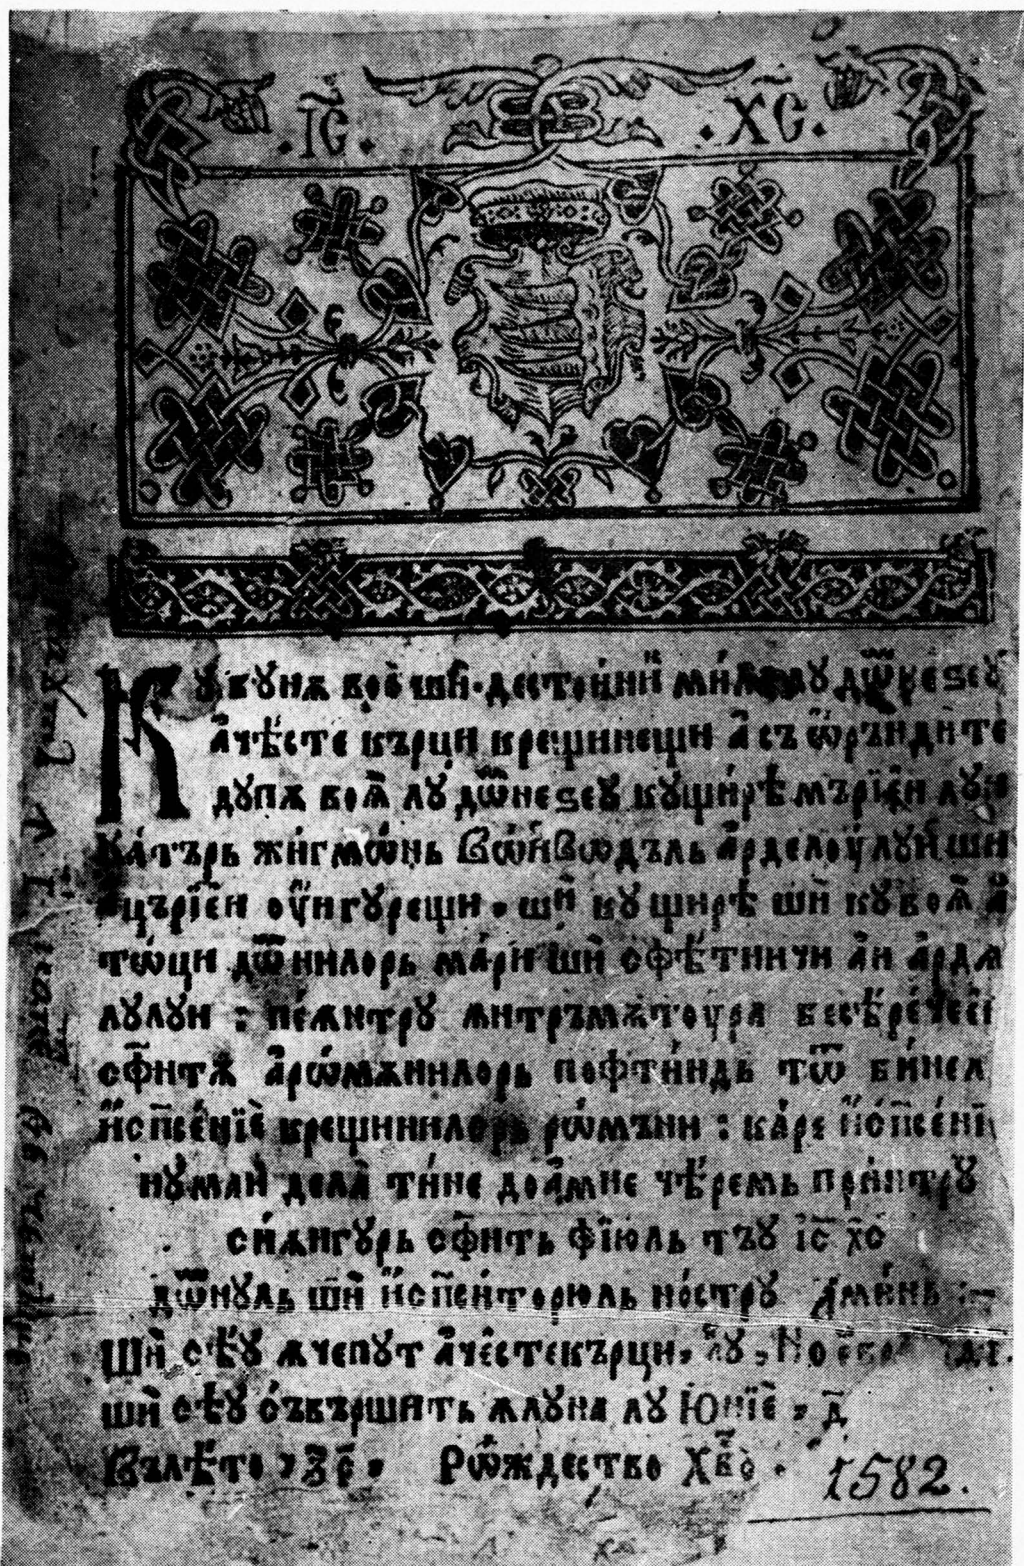 ·І҃С· ·Х҃С·
Кꙋ бꙋнѫ воѐ шѝ· дестоиний милꙋлꙋ дⷪ҇мнеꙅеꙋ
а҆чѣсте кърци крещинещи а҆съ ѡ҆ръндите
дꙋпѫ воꙗ лꙋ дⷪ҇мнеꙅеꙋ кꙋщирѣ мърїеи лꙋи
Батъръ жигмѡнь Вѡивѡдъль а҆рделоулꙋй ши
църїеи оунгꙋрещи· шѝ кꙋ щирѣ шѝ кꙋ воꙗ а҆
тѡци дⷪ҇мнилорь мари шѝ сфѣтничи аи ардѧ
лꙋлꙋи : пеѫнтрꙋ ѫнтръмѫтоура бесѣречеей
сф҃нтѫ а҆рѡмѫнилорь пофтиндь тѡⷮ бинел
и҆сп҃сеніе крещинилорь рѡмъни : каре и҆сп҃сені
нꙋмаи дела тине доамне чѣремь принтрꙋ
сиѫнгꙋрь сф҃нть фїюль тъꙋ і҃с х҃с
дⷪ҇мнꙋль шѝ и҆сп҃ситорюль нострꙋ аминь :~
Шѝ сѣꙋ ѫчепꙋт а҆честе кърци, лꙋ, Ноевр
шѝ сѣꙋ съвършить ѫ лꙋна лꙋ Юнїе , д҃
Вълѣто ,з҃ч҃· Рѡждество Хв҃о ·
1582.